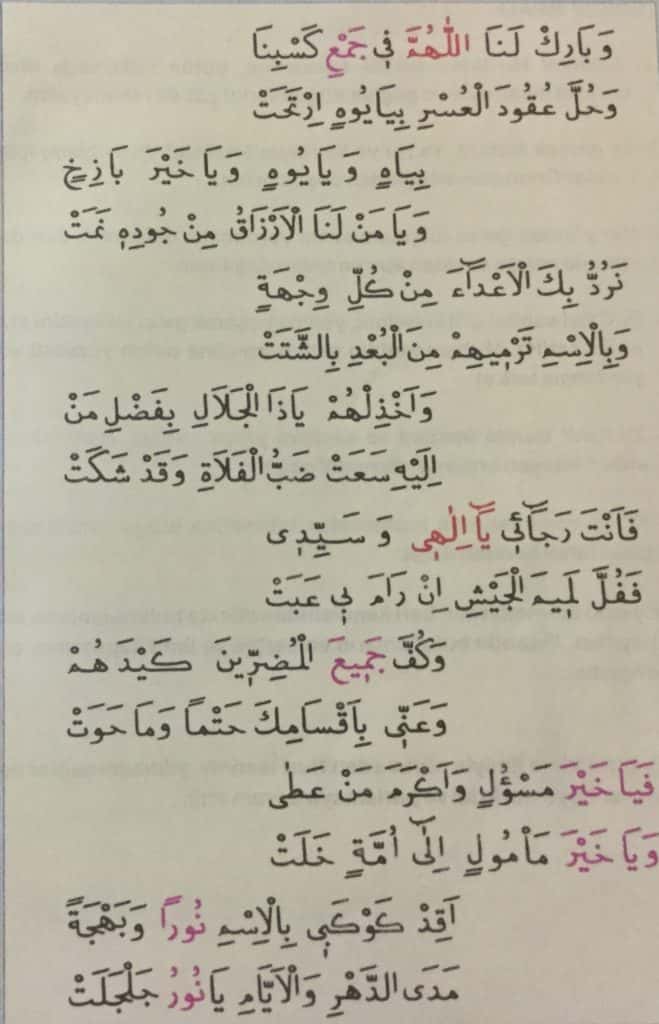 وَبَارِكْ لَنَا اَللّٰهُمَّ فٖى جَمْعِ كَسْبِنَا
وَحُلَّ عُقُودَ الْعُسْرِ بِيَايُوهٍ اِرْتَحَتْ
بِيَاهٍ وَيَايُوهٍ وَيَاخَيْرَ بَازِخٍ
وَيَامَنْ لَنَا الْاَرْزَاقُ مِنْ جُودِهٖ نَمَتْ
نَرُدُّ بِكَ الْاَعْدَٓاءَ مِنْ كُلِّ وِجْهَةٍ
وَبِالْاِسْمِ تَرْمٖيهِمْ مِنَ الْبُعْدِ بِالشَّتَتْ
وَاَخْذِلْهُمْ يَاذَا الْجَلَالِ بِفَضْلِ مَنْ
اِلَيْهِ سَعَتْ ضَبُّ الْفَلَاةِ وَقَدْ شَكَتْ
فَاَنْتَ رَجَٓائٖى يَٓا اِلٰهٖى وَسَيِّدٖى
فَفُلَّ لَمٖيمَ الْجَيْشِ اِنْ رَامَ بٖى عَبَتْ
وَكُفَّ جَمٖيعَ الْمُضِرّٖينَ كَيْدَهُمْ
وَعَنّٖى بِاَقْسَامِكَ حَتْمًا وَمَاحَوَتْ
فَيَاخَيْرَ مَسْؤُلٍ وَاَكْرَمَ مَنْ عَطٰى
وَيَاخَيْرَ مَاْمُولٍ اِلٰٓى اُمَّةٍ خَلَتْ
اَقِدْ كَوْكَبٖى بِالْاِسْمِ نُورًا وَبَهْجَةً
مَدَى الدَّهْرِ وَالْاَيَّامِ يَانُورُ جَلْجَلَتْ